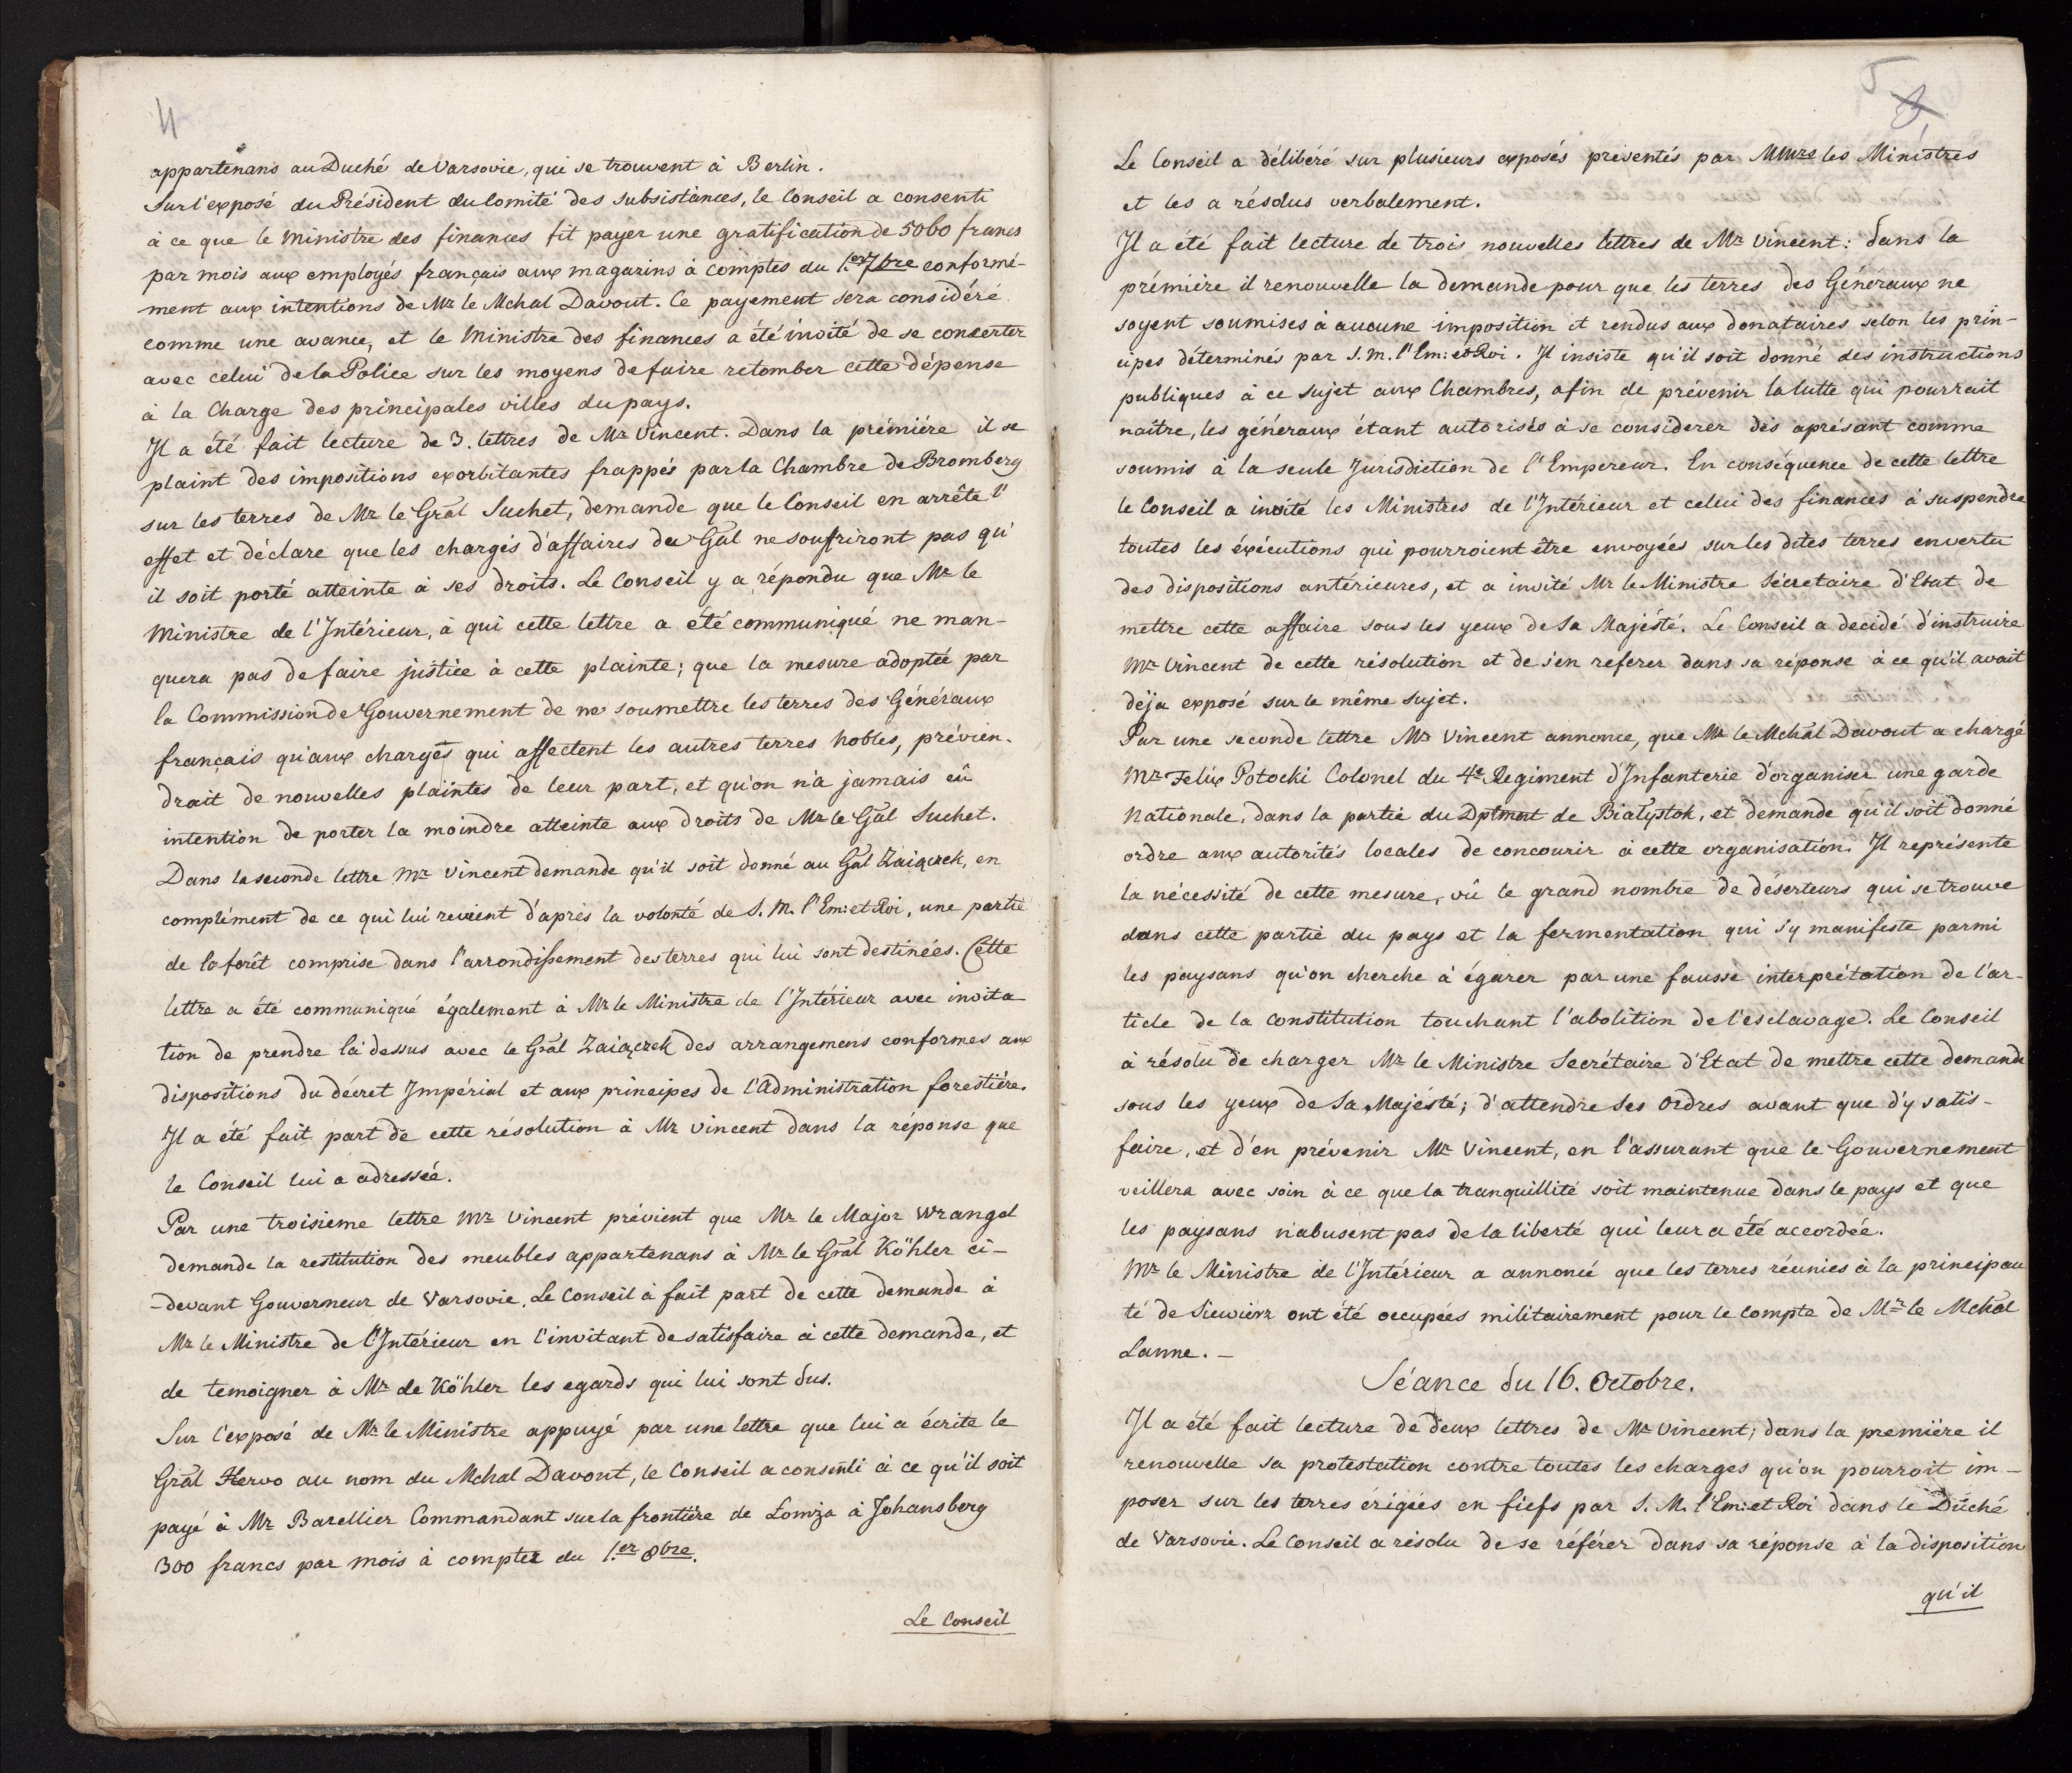 4
appartenans au Duché de Varsovie, qui se trouvent à Berlin.
Sur l'exposé du Président du Comité des subsistances, le Conseil a consenti
à ce que le Ministre des finances fit payer une gratification de 5060 francs
par mois aux employés français aux magazins à comptes du 1.er 7bre conformé-
ment aux intentions de Mr le Mchal Davout. Ce payement sera considéré
comme une avance, et le Ministre des finances a été invité de se concerter
avec celui de la Police sur les moyens de faire retomber cette dépense
à la Charge des principales villes du pays.
Il a été fait lecture de 3. lettres de Mr Vincent. Dans la prémière il se
plaint des impositions exorbitantes frappés par la Chambre de Bromberg
sur les terres de Mr le Gral Suchet, demande que le Conseil en arrête l'
effet et déclare que les chargés d'affaires du Gal ne souffriront pas qu'
il soit porté atteinte à ses droits. Le Conseil y a répondu que Mr le
Ministre de l'Intérieur, à qui cette lettre a été communiqué ne man-
quera pas de faire justice à cette plainte; que la mesure adoptée par
la Commission de Gouvernement de ne soumettre les terres des Généraux
français qu'aux charges qui affectent les autres terres nobles, prévien-
drait de nouvelles plaintes de leur part, et qu'on n'a jamais eû
intention de porter la moindre atteinte aux droits de Mr le Gal Suchet.
Dans la seconde lettre Mr Vincent demande qu'il soit donné au Gal Zaiączek, en
complément de ce qui lui revient d'après la volonté de S. M. l'Em: et Roi, une partie
de la forêt comprise dans l'arrondissement des terres qui lui sont destinées. Cette
lettre a été communiqué également à Mr le Ministre de l'Intérieur avec invita
tion de prendre là dessus avec le Gral Zaiączek des arrangemens conformes aux
dispositions du décret Impérial et aux principes de l'Administration forestière.
Il a été fait part de cette résolution à Mr Vincent dans la réponse que
le Conseil lui a adressée.
Par une troisieme lettre Mr Vincent prévient que Mr le Major Wrangel
demande la restitution des meubles appartenans à Mr le Gral Köhler ci-
-devant Gouverneur de Varsovie. Le Conseil à fait part de cette demande à
Mr le Ministre de l'Intérieur en l'invitant de satisfaire à cette demande, et
de temoigner à Mr de Köhler les egards qui lui sont dus.
Sur l'exposé de Mr le Ministre appuyé par une lettre que lui a écrite le
Gral Hervo au nom du Mchal Davout, le Conseil a consenti à ce qu'il soit
payé à Mr Barellier Commandant sur la frontière de Łomża à Johansberg
300 francs par mois à compter du 1.er 8bre.
Le Conseil
5
Le Conseil a délibéré sur plusieurs exposés présentés par Mmrs les Ministres
et les a résolus verbalement.
Il a été fait lecture de trois nouvelles lettres de Mr Vincent: dans la
prémière il renouvelle la demande pour que les terres des Généraux ne
soyent soumises à aucune imposition et rendus aux donataires selon les prin-
cipes déterminés par S. M. l'Em: et Roi. Il insiste qu'il soit donné des instructions
publiques à ce sujet aux Chambres, afin de prévenir la lutte qui pourrait
naitre, les généraux étant autorisés à se considerer dès aprésant comme
soumis à la seule Jurisdiction de l'Empereur. En conséquence de cette lettre
le Conseil a invité les Ministres de l'Intérieur et celui des finances à suspendre
toutes les éxécutions qui pourroient être envoyées sur les dites terres envertu
des dispositions antérieures, et a invité Mr le Ministre Sécretaire d'Etat de
mettre cette affaire sous les yeux de Sa Majésté. Le Conseil a decidé d'instruire
Mr Vincent de cette résolution et de s'en referer dans sa réponse à ce qu'il avait
déja exposé sur le même sujet.
Par une seconde lettre Mr Vincent annonce, que Mr le Mchal Davout a chargé
Mr Felix Potocki Colonel du 4e Regiment d'Infanterie d'organiser une garde
Nationale, dans la partie du Dptment de Białystok, et demande qu'il soit donné
ordre aux autorités locales de concourir à cette organisation. Il représente
la nécessité de cette mesure, vû le grand nombre de déserteurs qui se trouve
dans cette partie du pays et la fermentation qui s'y manifeste parmi
les paysans qu'on cherche à égarer par une fausse interprétation de l'ar-
ticle de la Constitution touchant l'abolition de l'esclavage. Le Conseil
à résolu de charger Mr le Ministre Secrétaire d'Etat de mettre cette demande
sous les yeux de Sa Majésté; d'attendre Ses Ordres avant que d'y satis-
faire, et d'en prévenir Mr Vincent, en l'assurant que le Gouvernement
veillera avec soin à ce que la tranquillité soit maintenue dans le pays et que
les paysans n'abusent pas de la liberté qui leur a été accordée.
Mr le Ministre de l'Intérieur a annoncé que les terres réunies à la principau
té de Siewierz ont été occupées militairement pour le compte de Mr le Mchal
Lanne. -
Séance du 16. Octobre.
Il a été fait lecture de deux lettres de Mr Vincent; dans la première il
renouvelle sa protestation contre toutes les charges qu'on pourroit im-
poser sur les terres érigées en fiefs par S. M. l'Em: et Roi dans le Duché
de Varsovie. Le Conseil a résolu de se référer dans sa réponse à la disposition
qu'il